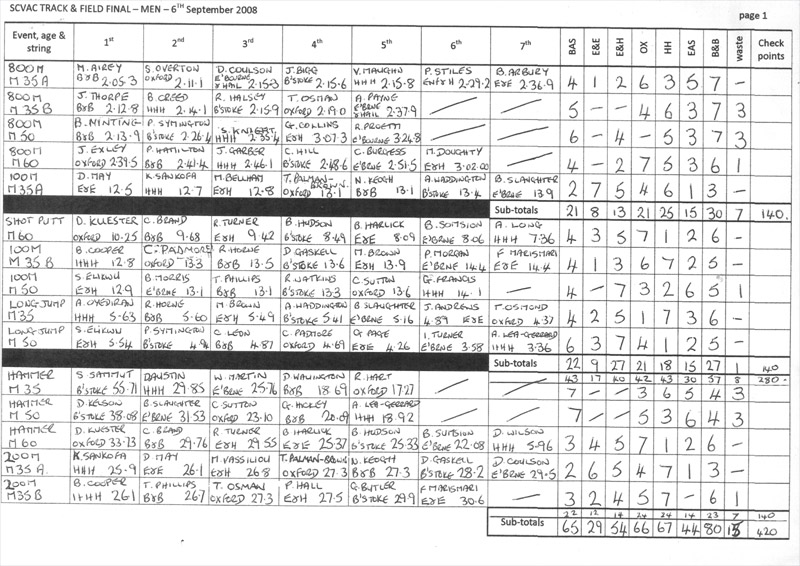 SCVAC TRACK & FIELD FINAL – MEN – 6TH September 2008
page 1
Event, age & string 1st 2nd 3rd 4th 5th 6th 7th BAS E&E E&H OX HH EAS B&B waste Check points
800M M. AIREY S. OVERTON D. COULSON J. BIGG V. MAUGHN P. STILES B. ARBURY
M 35A B&B 2.05.3 OXFORD 2.11.1 R'BOURNE & HAIL 2.15.3 B'STOKE 2.15.6 HHH 2.15.8 2.29.2 E&E 2.36.9 4 1 2 6 3 5 7 –
800M J. THORPE B. CREED R. HALSEY T. OSMAN A. PAYNE
M 35B B&B 2.12.8 HHH 2.14.1 B'STOKE 2.15.9 OXFORD 2.19.0 E'BRNE & HAIL 2.37.9 5 – – 4 6 3 7 3
800M B. MINTING P. SYMINGTON S. KNIGHT G. COLLINS R. PROETTI
M 50 B&B 2.13.9 B'STOKE 2.26.4 HHH 2.35.4 E&H 3.07.3 E'BRNE 3.24.8 6 – 4 – 5 3 7 3
800M J. EXLEY P. HAMILTON J. GARBER C. HILL C. BURGESS M. DOUGHTY
M60 OXFORD 2.39.5 B&B 2.41.4 HHH 2.46.1 B'STOKE 2.48.6 E'BRNE 2.51.5 E&H 3.02.00 4 – 2 7 5 3 6 1
100M D. MAY K. SANKOFA M. BELLHAM T. PALMAN-BROWN N. KEOGH A. WADDINGTON B. SLAUGHTER
M35A E&E 12.5 HHH 12.7 E&H 12.8 OXFORD 13.1 B&B 13.1 B'STOKE 13.4 E'BRNE 13.9 2 7 5 4 6 1 3 –
Sub-totals 21 8 13 21 25 15 30 7 140.
SHOT PUTT D. KWESTER C. BRAND R. TURNER B. HUDSON B. HARLICK B. A. LONG
M60 OXFORD 10.25 B&B 9.68 E&H 9.42 B'STOKE 8.49 E&E 8.09 E'BRNE 8.06 HHH 7.36 4 3 5 7 1 2 6 –
100M B. COOPER C. PADMORE R. HORNE D. GASKELL M. BROWN P. MORGAN F MARISMARI
M 35B HHH 12.8 OXFORD 13.3 B&B 13.5 B'STOKE 13.6 E&H 13.9 E'BRNE 14.4 E&E 14.4 4 1 3 6 7 2 5 –
100M S. EWKWU B. MORRIS T. PHILLIPS R. WATKINS C. SUTTON G. FRANCIS
M50 E&H 12.9 E'BRNE 13.1 B&B 13.1 B'STOKE 13.3 OXFORD 13.6 HHH 14.1 4 – 7 3 2 6 5 1
LONG JUMP A. OYEDIRAN R. HORNE M. BROWN A. WADDINGTON B. SLAUGHTER J. ANDREWS T. OSMOND
M35 HHH 5.63 B&B 5.60 E&H 5.49 B'STOKE 5.41 E'BRNE 5.16 4.89 E&E OXFORD 4.37 4 2 5 1 7 3 6 –
LONG JUMP S. EWKWU P. SYMINGTON C. LEON C. PADMORE G. PAGE I. TURNER A. LEA-GERRARD
M 50 E&H 5.54 B'STOKE 4.94 B&B 4.87 OXFORD 4.69 E&E 4.26 E'BRNE 3.58 HHH 3.36 6 3 7 4 1 2 5 –
Sub-totals 22 9 27 21 18 15 27 1 140
43 17 40 42 43 30 57 8 280.
HAMMER S. SAMMUT DAUSTIN W. MARTIN D. WALINGTON R. HART
M 35 B'STOKE 55.71 HHH 29.85 E'BRNE 25.76 B&B 18.69 OXFORD 17.27 7 – – 3 6 5 4 3
HAMMER D. KELSON B. SLAUGHTER C. SUTTON G. HICKEY A. LEA-GERRARD
M 50 B'STOKE 38.08 E'BRNE 31.53 OXFORD 23.10 B&B 20.09 HHH 18.92 7 – – 5 3 6 4 3
HAMMER D. KWESTER C. BRAND R. TURNER B. HARLICK B. HUDSON B. D. WILSON
M60 OXFORD 33.73 B&B 29.76 E&H 29.55 E&E 25.37 B'STOKE 25.33 E'BRNE 22.08 HHH 5.96 3 4 5 7 1 2 6 –
200M K. SANKOFA D MAY M. VASSILIOU T. PALMAN-BROWN N. KEOGH D. GASKELL D COULSON
M 35 A. HHH 25.9 E&E 26.1 E&H 26.8 OXFORD 27.3 B&B 27.3 B'STOKE 28.2 E'BRNE 29.5 2 6 5 4 7 1 3 –
200M B. COOPER T. PHILLIPS T. OSMAN P. HALL G. BUTLER F MARISMARI
M35B HHH 26.1 B&B 26.7 OXFORD 27.3 E&H 27.5 B'STOKE 29.9 E&E 30.6 3 2 4 5 7 – 6 1
22 12 14 24 24 14 23 7 140
Sub-totals 65 29 54 66 67 44 80 15 420